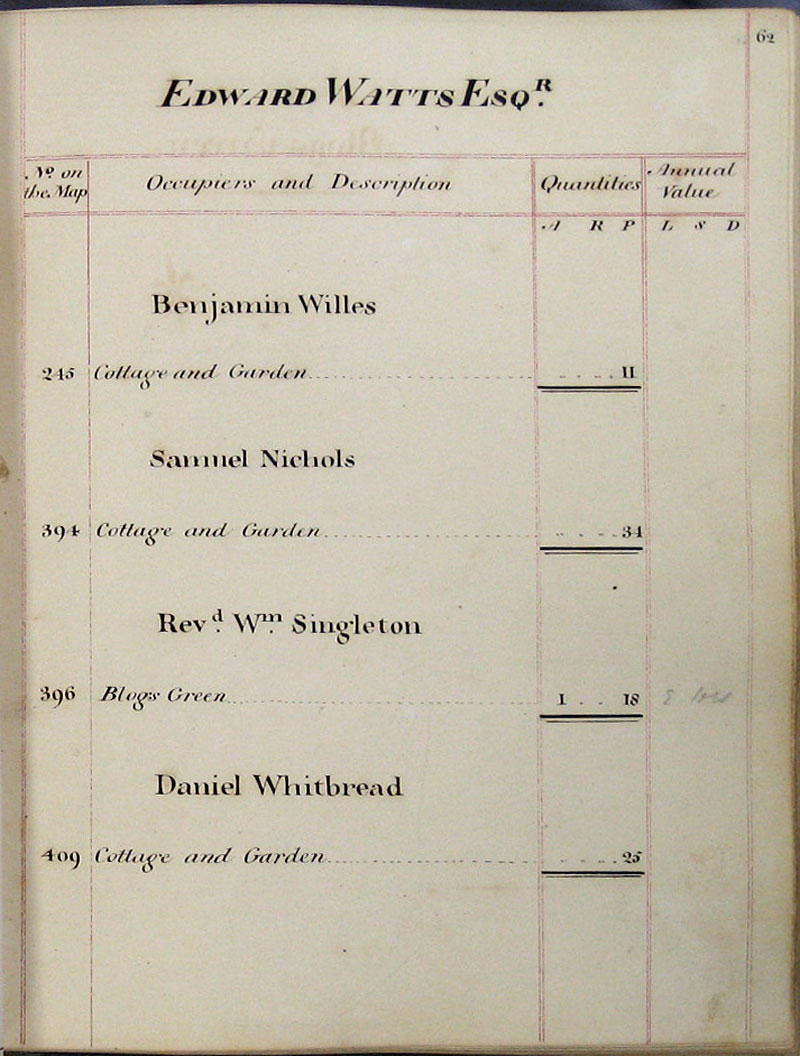 62
EDWARD WATTS ESQ.R
No on the Map Occupiers and Description Quantities Annual Value
A R P L S D
Benjamin Willes
245 Cottage and Garden 11
Samuel Nichols
394 Cottage and Garden 34
Revd. Wm. Singleton
396 Blogs Green 1 . . 18
Daniel Whitbread
409 Cottage and Garden 25